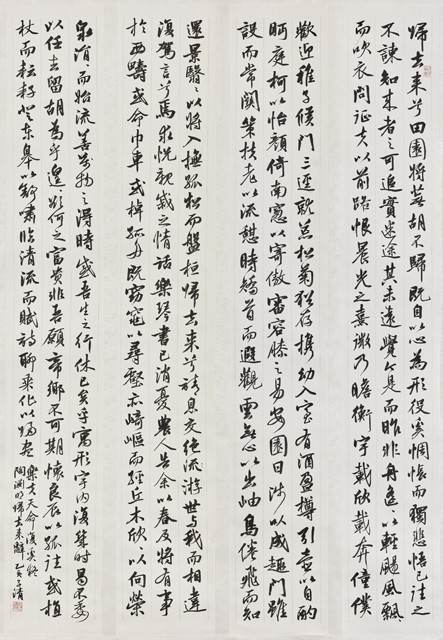 歸去來兮田園將蕪胡不歸既自以心為形役奚惆悵而獨悲悟已往之
不諫知來者之可追實迷途其未遠覺今是而昨非舟遙遙以輕颺風飄飄
而吹衣問征夫以前路恨晨光之熹微乃瞻衡宇載欣載奔僮僕
歡迎稚子候門三逕就荒松菊猶存攜幼入室有酒盈樽引壺以自酌
眄庭柯以怡顏倚南窗以寄傲審容膝之易安園日涉以成趣門雖
設而常關策扶老以流憩時矯首而遐觀雲無心以出岫鳥倦飛而知
還景翳翳以將入撫孤松而盤桓歸去來兮請息交絕流游世與我而相違
復駕言兮焉求悅親戚之情話樂琴書已消憂農人告余以春及將有事
於西疇或命巾車或棹孤舟既窈窕以尋壑亦崎嶇而經丘木欣欣以向榮
泉涓涓而始流善萬物之得時感吾生之行休已矣乎寓形宇內復幾時曷不委
以任去留胡為乎遑遑欲何之富貴非吾願帝鄉不可期懷良辰以孤往或植
杖而耘耔登東皋以舒嘯臨清流而賦詩聊乘化以歸盡
樂夫天命復奚疑
陶淵明歸去來辭